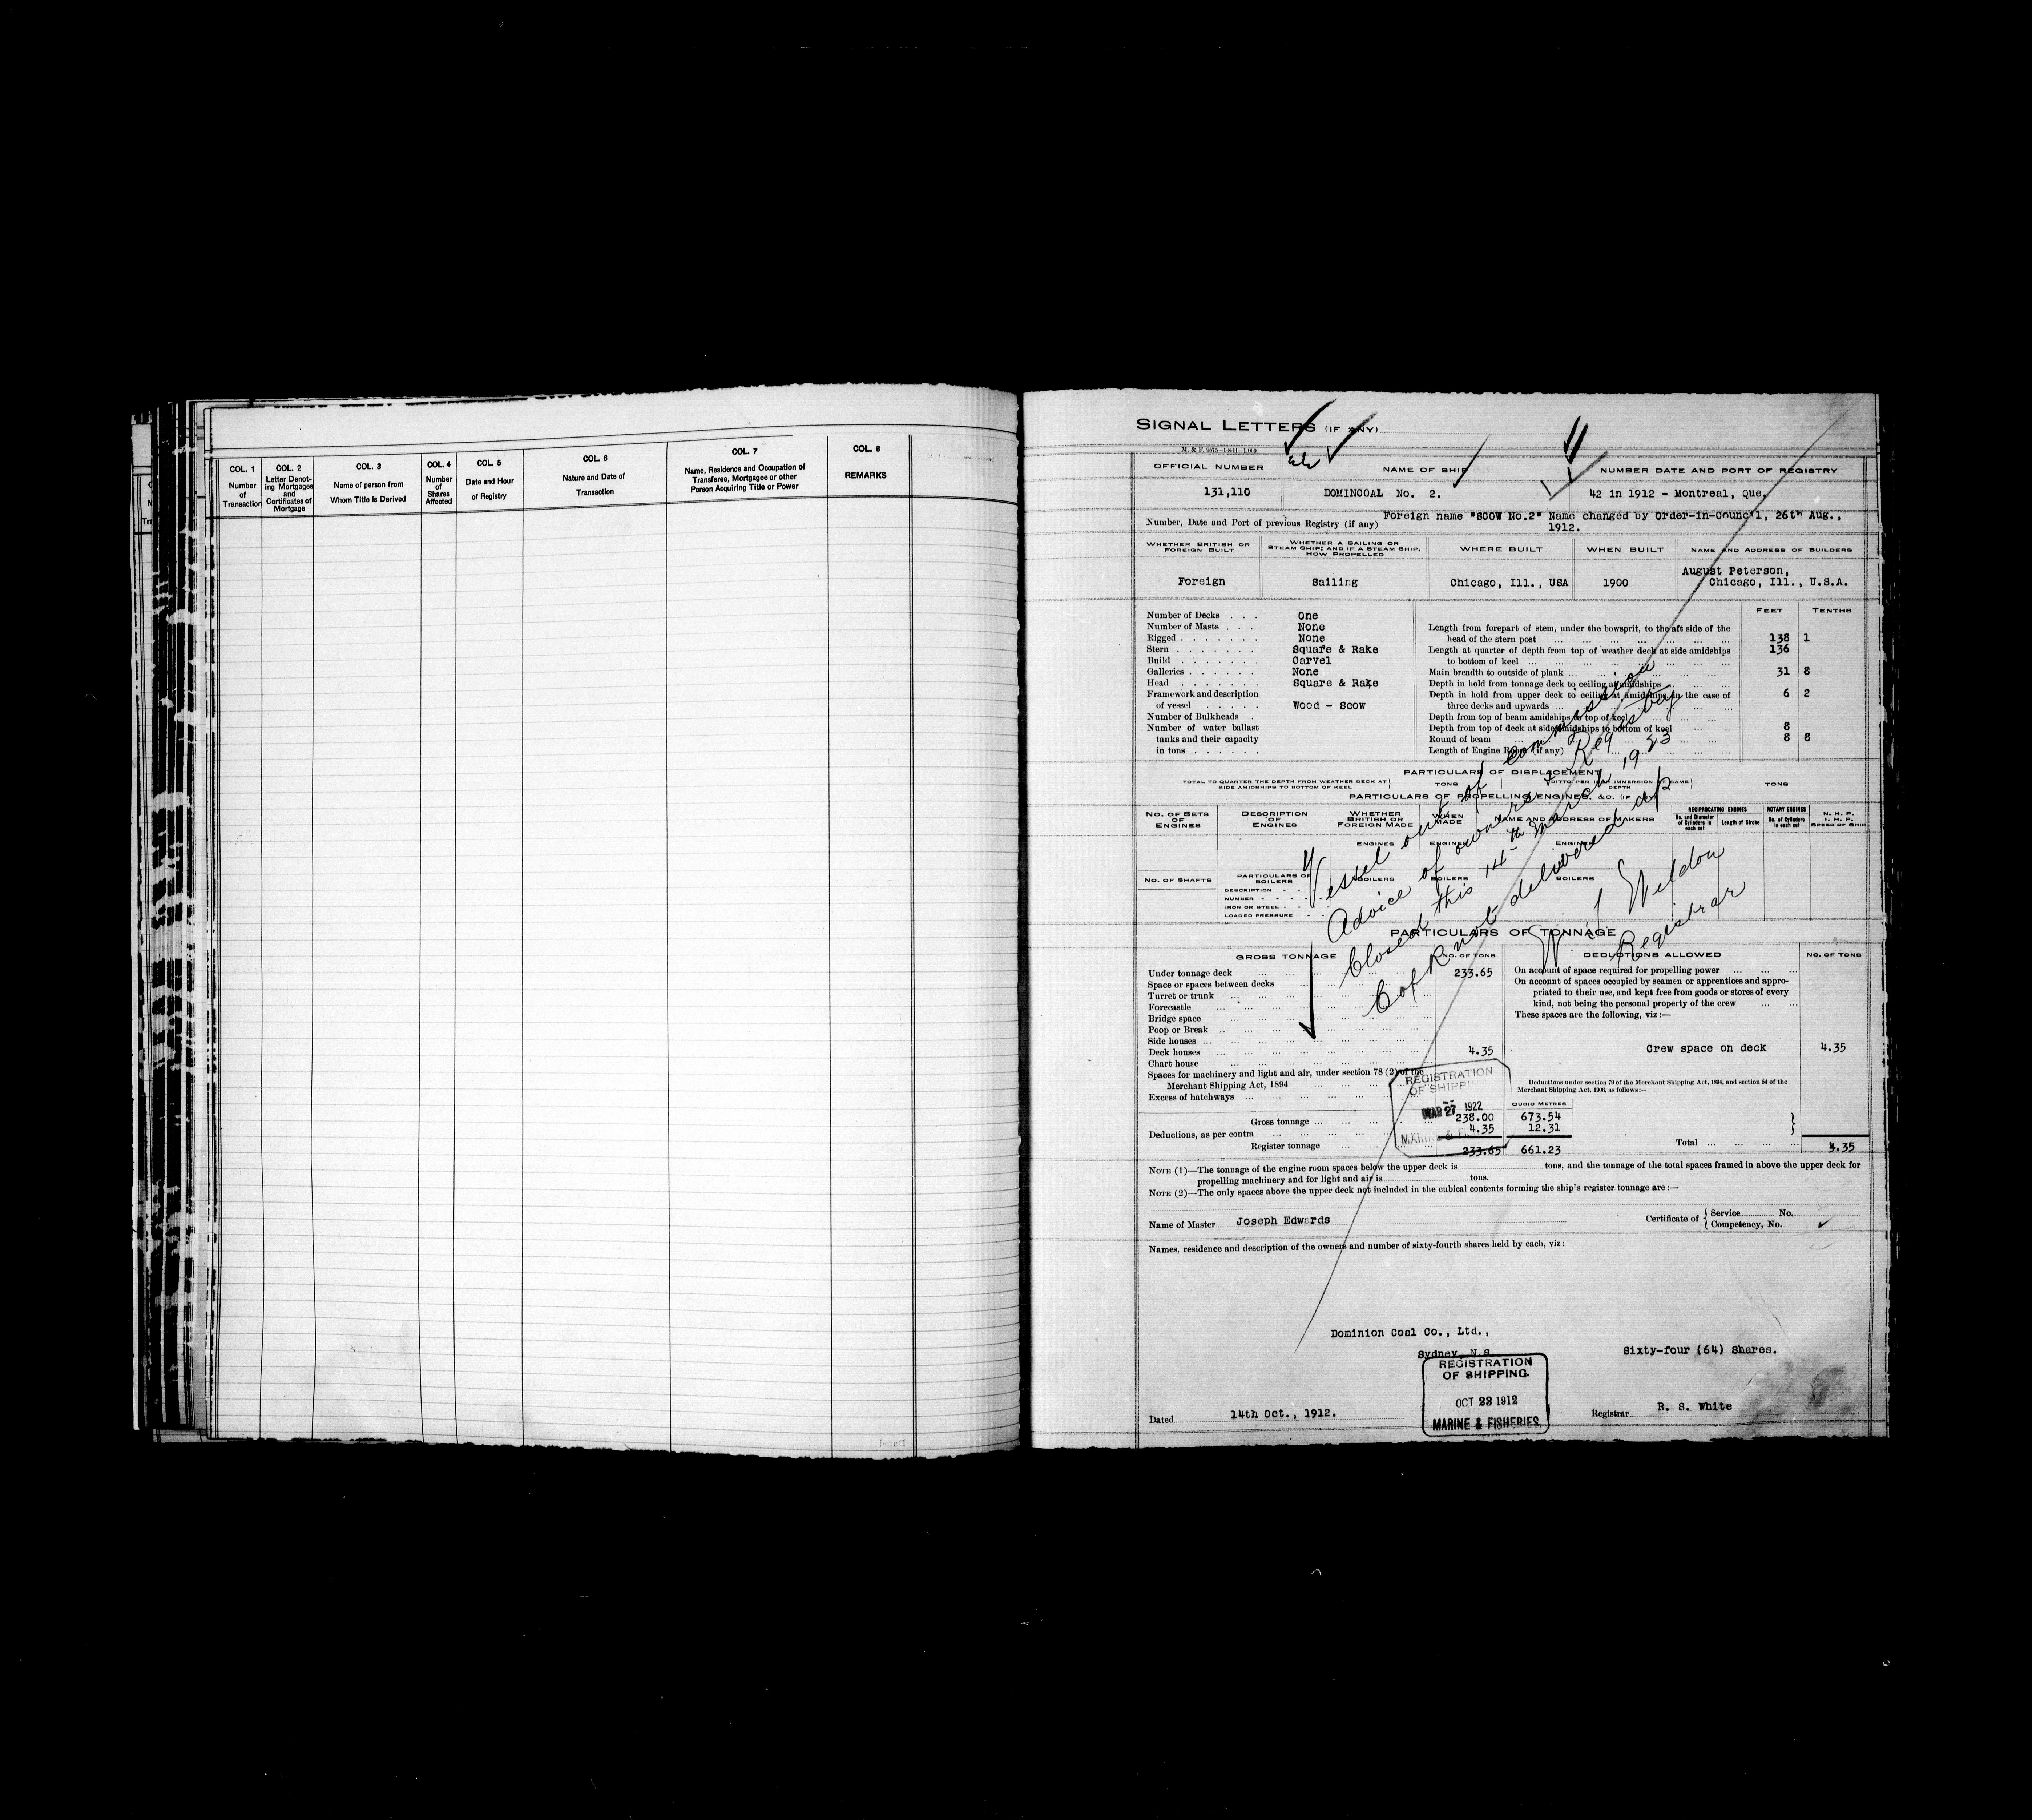 COL. 1
Number
of
Transaction
COL. 2
Letter Denot-
ing Mortgages
and
Certificates of
Mortgage
COL. 3
Name of person from
Whom Title is Derived
COL. 4
Number
of
Shares
Affected
COL. 5
Date and Hour
of Registry
COL. 6
Nature and Date of
Transaction
COL. 7
Name, Residence and Occupation of
Transferee, Mortgagee or other
Person Acquiring Title or Power
COL. 8
REMARKS
SIGNAL LETTERS (IF ANY)
OFFICIAL NUMBER
NAME OF SHIP
NUMBER DATE AND PORT OF REGISTRY
131,110
DOMINCOAL No. 2.
42 in 1912 - Montreal, Que.
Number, Date and Port of previous Registry (if any) Foreign name "SCOW No.2" Name changed by Order-in-Council, 26th Aug.,
1912.
WHETHER BRITISH OR
FOREIGN BUILT
WHETHER A SAILING OR
STEAM SHIP; AND IF A STEAM SHIP,
HOW PROPELLED
WHERE BUILT
WHEN BUILT
NAME AND ADDRESS OF BUILDERS
Foreign
Sailing
Chicago, Ill., USA
1900
August Peterson,
Chicago, Ill., U.S.A.
FEET TENTHS
Number of Decks . . . One
Number of Masts . . . None
Rigged . . . . . . . None
Stern . . . . . . . Square & Rake
Build . . . . . . . Carvel
Galleries . . . . . . None
Head . . . . . . . Square & Rake
Framework and description
of vessel . . . . . Wood - Scow
Number of Bulkheads .
Number of water ballast
tanks and their capacity
in tons . . . . . .
Length from forepart of stem, under the bowsprit, to the aft side of the
head of the stern post ... 138 1
Length at quarter of depth from top of weather deck at side amidships 136
to bottom of keel ...
Main breadth to outside of plank ... 31 8
Depth in hold from tonnage deck to ceiling at amidships ...
Depth in hold from upper deck to ceiling at amidships, in the case of 6 2
three decks and upwards ...
Depth from top of beam amidships to top of keel ...
Depth from top of deck at side amidships to bottom of keel ... 8
Round of beam ... 8 8
Length of Engine Room (if any) ...
PARTICULARS OF DISPLACEMENT
TOTAL TO QUARTER THE DEPTH FROM WEATHER DECK AT
SIDE AMIDSHIPS TO BOTTOM OF KEEL
TONS
TONS
PARTICULARS OF PROPELLING ENGINES, &C.
NO. OF SETS
OF
ENGINES
DESCRIPTION
OF
ENGINES
WHETHER
BRITISH OR
FOREIGN MADE
WHEN
MADE
NAME AND ADDRESS OF MAKERS
RECIPROCATING ENGINES
No. and Diameter
of Cylinders in
each set
Length of Stroke
ROTARY ENGINES
No. of Cylinders
in each set
N. H. P.
I. H. P.
SPEED OF SHIP
ENGINES
ENGINES
ENGINES
NO. OF SHAFTS
PARTICULARS OF
BOILERS
BOILERS
BOILERS
BOILERS
DESCRIPTION
NUMBER
IRON OR STEEL
LOADED PRESSURE
Vessel out of commission
Advice of owners. Registry
Closed this 14th March 1923
C of R not delivered up
Weldon
Registrar
PARTICULARS OF TONNAGE
GROSS TONNAGE
NO. OF TONS
DEDUCTIONS ALLOWED
NO. OF TONS
Under tonnage deck ... 233.65
Space or spaces between decks
Turret or trunk ...
Forecastle ...
Bridge space
Poop or Break ...
Side houses ...
Deck houses ... 4.35
Chart house ...
Spaces for machinery and light and air, under section 78 (2) of the
Merchant Shipping Act, 1894 ...
Excess of hatchways ...
Gross tonnage ... 238.00 673.54
Deductions, as per contra ... 4.35 12.31
Register tonnage ... 233.65 661.23
CUBIC METRES
On account of space required for propelling power ...
On account of spaces occupied by seamen or apprentices and appro-
priated to their use, and kept free from goods or stores of every
kind, not being the personal property of the crew ...
These spaces are the following, viz :—
Crew space on deck 4.35
Deductions under section 79 of the Merchant Shipping Act, 1894, and section 54 of the
Merchant Shipping Act, 1906, as follows:—
Total ... 4.35
REGISTRATION
OF SHIPPING
MAR 27 1922
NOTE (1)—The tonnage of the engine room spaces below the upper deck is tons, and the tonnage of the total spaces framed in above the upper deck for
propelling machinery and for light and air is tons.
NOTE (2)—The only spaces above the upper deck not included in the cubical contents forming the ship's register tonnage are :—
Name of Master Joseph Edwards
Certificate of { Service No.
Competency, No.
Names, residence and description of the owners and number of sixty-fourth shares held by each, viz :
Dominion Coal Co., Ltd.,
Sydney, N.S.
Sixty-four (64) Shares.
REGISTRATION
OF SHIPPING.
OCT 23 1912
MARINE & FISHERIES
Dated 14th Oct., 1912.
Registrar R. S. White